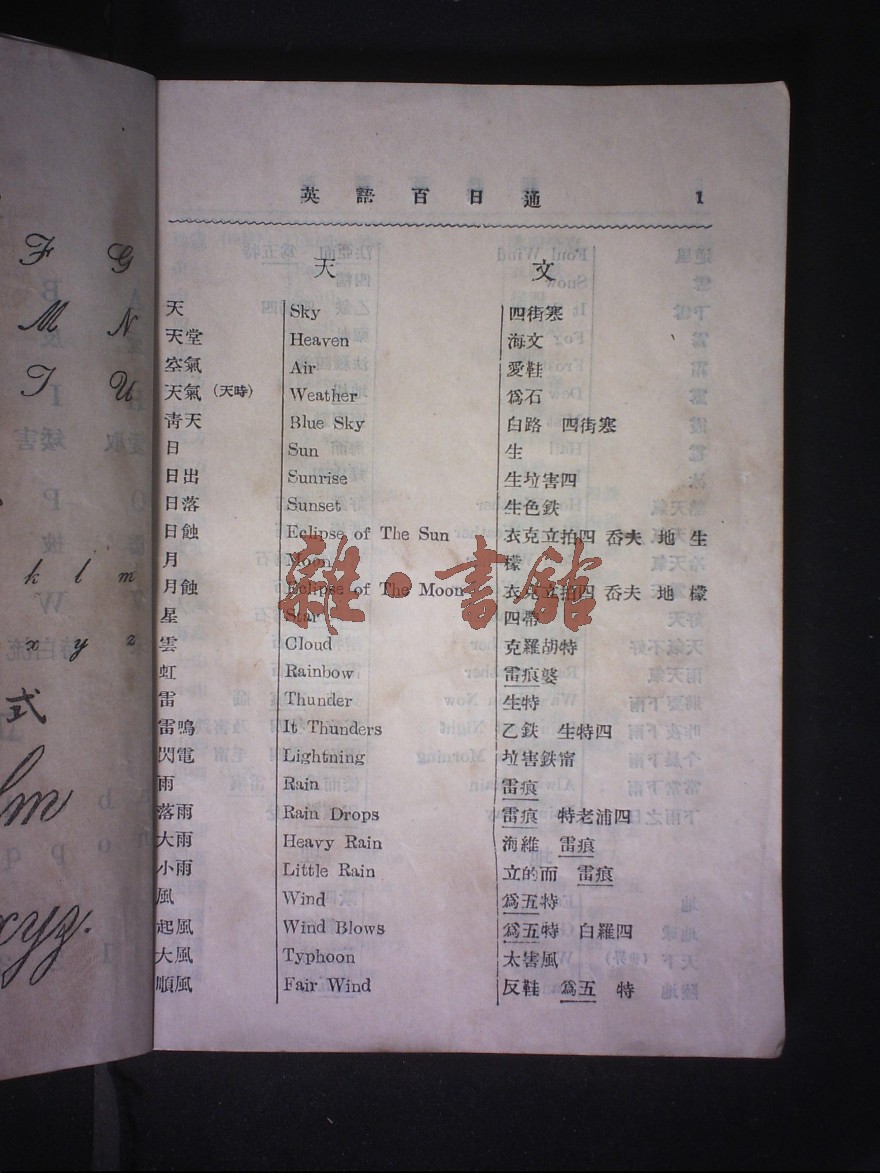 英語百日通 1
天文
天 Sky 四街寒
天堂 Heaven 海文
空氣 Air 愛鞋
天氣（天時） Weather 爲石
靑天 Blue Sky 白路 四街寒
日 Sun 生
日出 Sunrise 生垃害四
日落 Sunset 生色鉄
日蝕 Eclipse of The Sun 衣克立拍四 岙夫 地 生
月 Moon 檬
月蝕 Eclipse of The Moon 衣克立拍四 岙夫 地 檬
星 Star 四帶
雲 Cloud 克羅胡特
虹 Rainbow 雷痕婆
雷 Thunder 生特
雷鳴 It Thunders 乙鉄 生特四
閃電 Lightning 垃害鉄甯
雨 Rain 雷痕
落雨 Rain Drops 雷痕 特老浦四
大雨 Heavy Rain 海維 雷痕
小雨 Little Rain 立的而 雷痕
風 Wind 爲五特
起風 Wind Blows 爲五特 白羅四
大風 Typhoon 太害風
順風 Fair Wind 反鞋 爲五 特
F G
M N
T U
k l m
x y z
式
lm
xyz.
雜·書館